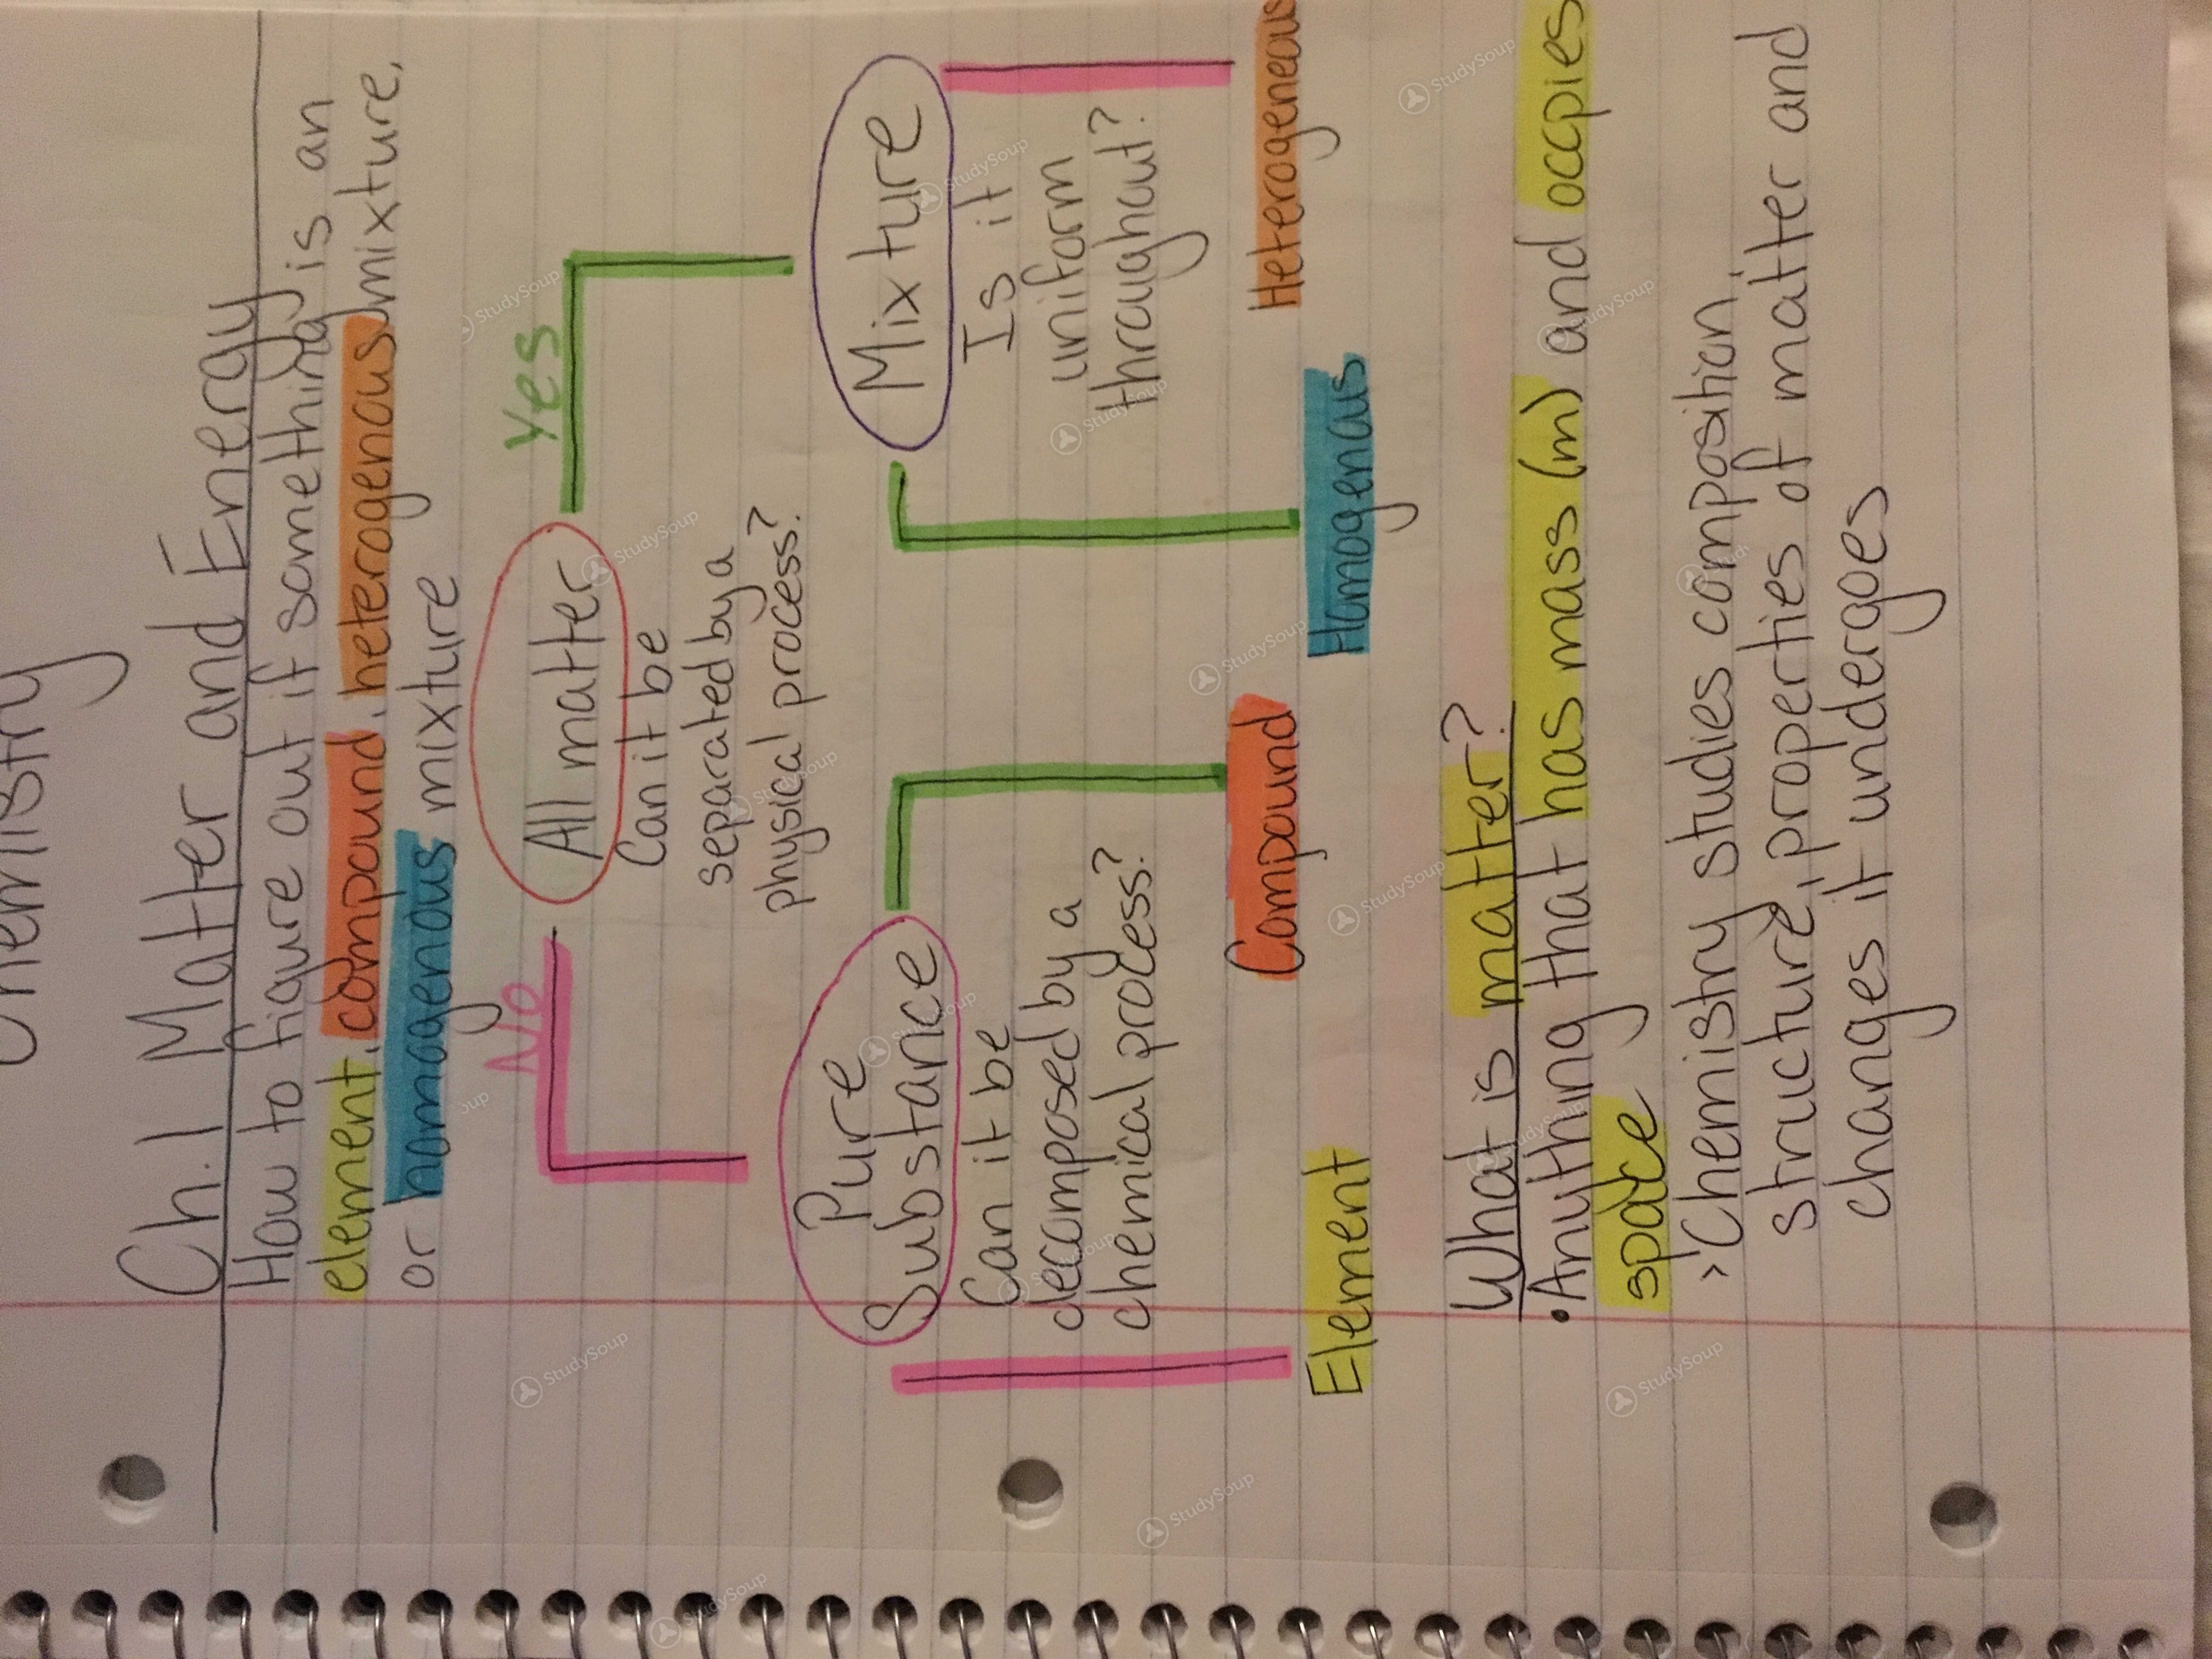 Chemistry
Ch. 1 Matter and Energy
How to figure out if something is an
element, compound, heterogenous mixture,
or homogenous mixture
No
Yes
All matter
Can it be
separated by a
physical process?
Pure
Substance
Can it be
decomposed by a
chemical process?
Mixture
Is it
uniform
throughout?
Element
Compound
Homogenous
Heterogeneous
What is matter?
• Anything that has mass (m) and occpies
space
> Chemistry studies composition,
structure, properties of matter and
changes it undergoes
StudySoup